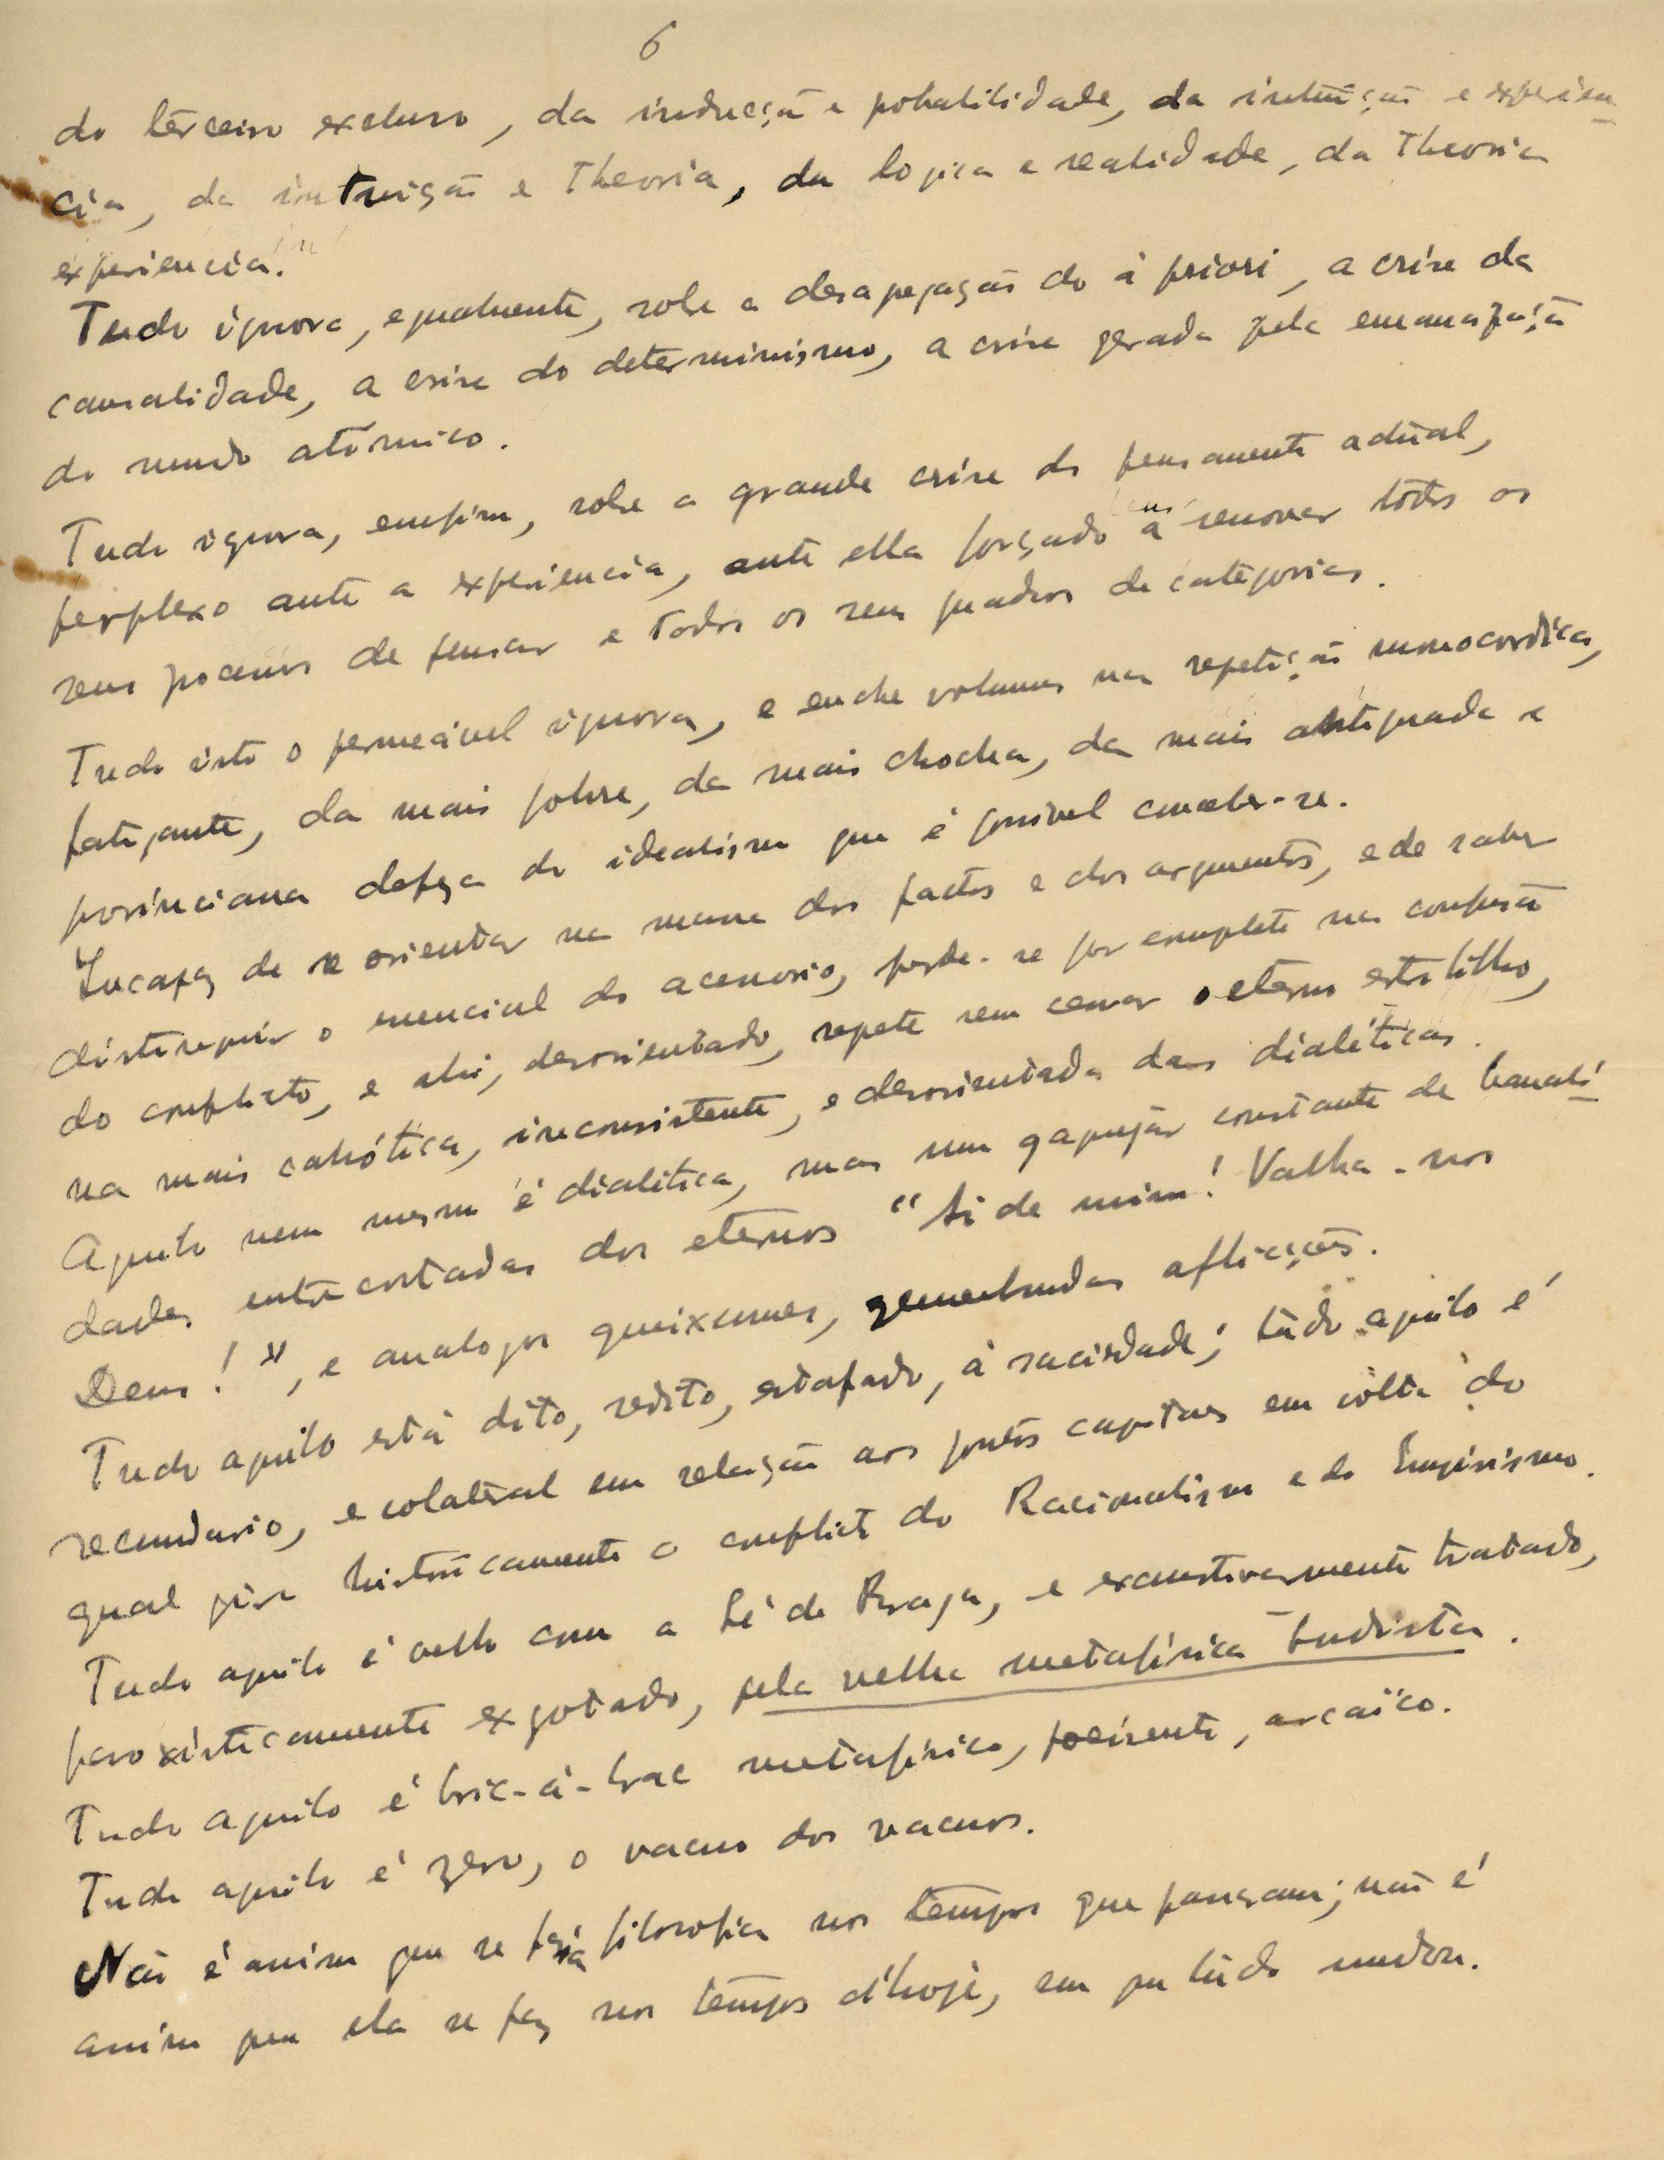 6
do terceiro excluso, da inducção e probabilidade, da intuição e experien
cia, da intuição e theoria, da logica e realidade, da theoria
experiencia.
Tudo ignora, egualmente, sobre a desapegação do à priori, a crise da
causalidade, a crise do determinismo, a crise gerada pela
do mundo atómico.
Tudo ignora, emfim, sobre a grande crise do pensamento actual,
perplexo ante a experiencia, ante ella forçado a renovar todos os
seus processos de pensar e todos os seus quadros de categorias.
Tudo isto o permeável ignora, e enche volumes na repetição monocordica,
fatigante, da mais pobre, da mais chocha, da mais antiquada e
provinciana defeza do idealismo que é possivel conceber-se.
Incapaz de se orientar na massa dos factos e dos argumentos, e de saber
distinguir o essencial do acessorio, perde-se por completo na confusão
do conflicto, e ahi, desorientado, repete sem cessar o eterno estribilho,
na mais cahótica, inconsistente, e desorientada das dialéticas.
Aquilo nem mesmo é dialética, mas um gaguejar constante de banali
dades entrecortadas dos eternos "Ai de mim! Valha-nos
Deus!", e analogos queixumes, gemebundas aflicções.
Tudo aquilo está dito, redito, estafado, à saciedade; túdo aquilo é
secundario, e colateral em relação aos pontos capitaes em vólta do
qual gira históricamente o conflicto do Racionalismo e do Empirismo.
Tudo aquilo é velho como a Sé de Braga, e exaustivamente tratado,
paroxísticamente exgotado, pela velha metafísica budista.
Tudo aquilo é bric-à-brac metafísico, poeirento, arcaico.
Tudo aquilo é zero, o vacuo dos vacuos.
Não é assim que se fazia filosofia nos tempos que passaram; não é
assim que ela se faz nos tempos d'hoje, em que túdo mudou.